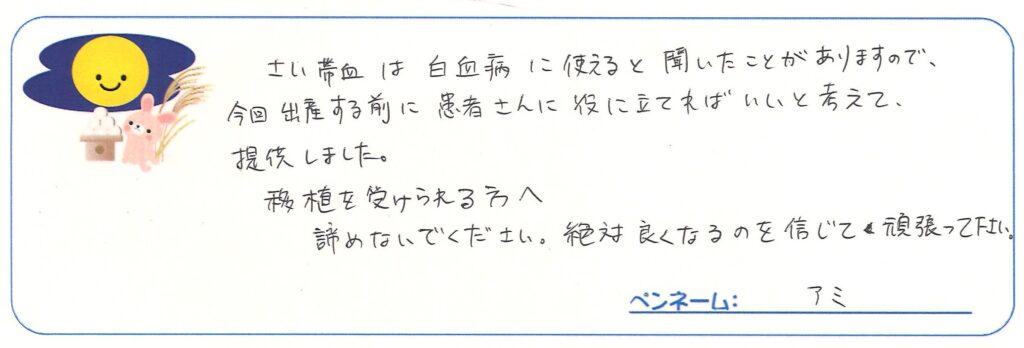 さい帯血は白血病に使えると聞いたことがありますので、
今回出産する前に患者さんに役に立てればいいと考えて、
提供しました。
移植を受けられる方へ
諦めないでください。絶対良くなるのを信じて頑張って下さい。
ペンネーム: アミ